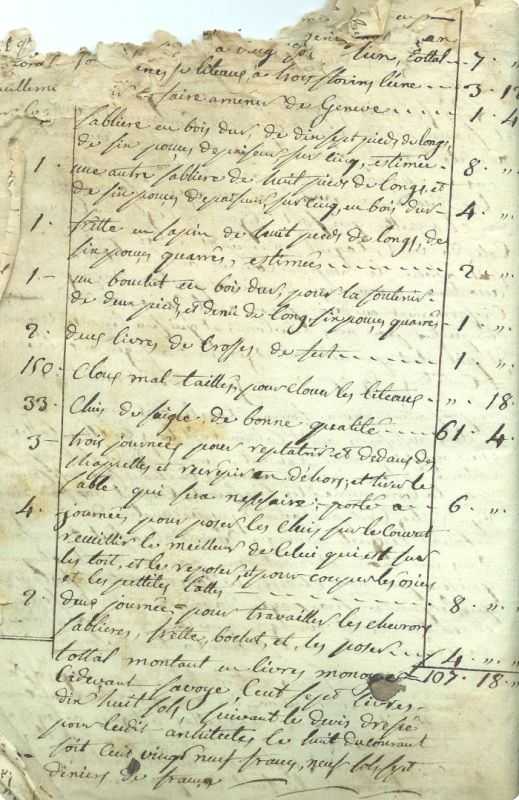 a vingt sol l'un, tottal — 7 "
ines pr liteaux a trois florins l'une — 3 12
faire amener de Geneve — 1 4
Sabliere en bois dur, de dix sept pieds de longs,
de six pouces depaiseur sur cinq, estimée — 8 "
1 une autre sabliere de huit pieds de longs, et
de six pouces d'epaiseur, sur cinq, en bois dur — 4 "
1 frette en sapin de huit pieds de longs, de
six pouces quarrés, estimées — 2 "
1 un bouchet en bois dur, pour la soutenir
de deux pieds et demi de long, six pouces quarrés — 1 "
2 deux livres de Brosses de fert — 1 "
150 Clous mal taillés, pour clouer les liteaus — " 18
33 Cluis de seigle, de bonne qualité — 61 4
3 trois journées pour replatrir et dedans de
chapuettes et recrepir en déhors, et tirer le
sable qui sera nessaire, porté a — 6 "
4 journées pour poser les Cluis sur le Couvert
remillir le meilleur de Celui qui est sur
les toit, et le reposer, et pour couper les osiers
et les pettites Lattes — 8 "
2 deux journée pour travailler les chevrons
Sablieres, frette, bochet, et, les poser — 4 " "
tottal montant en livres monoye — 107 18 "
Cidevant Savoye, Cent sept livres
dix huit sols, suivant le devis dressé
pour ledit architectes le huit du courant
soit Cent vingt neuf francs, neuf sols, sept
deniers de france